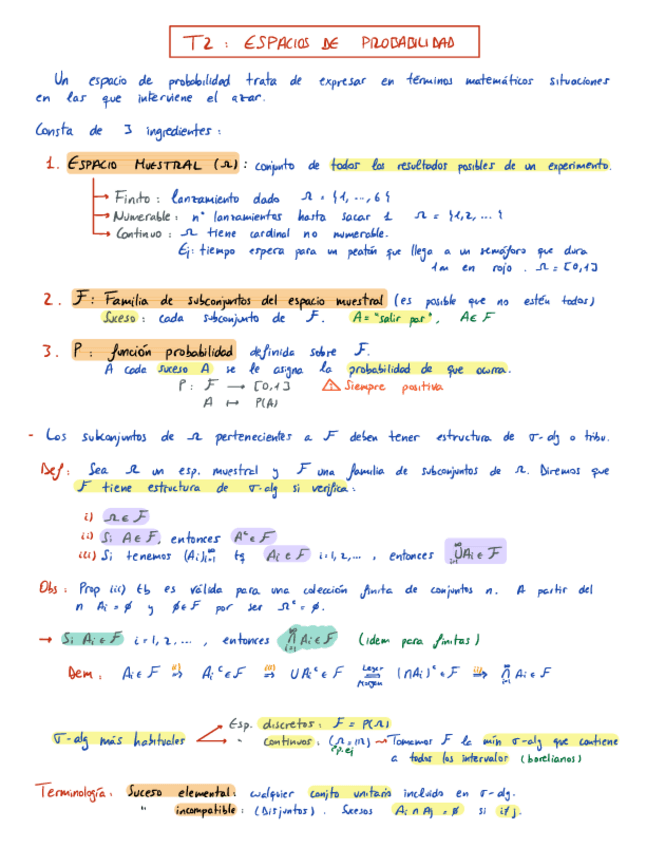 T2 : ESPACIOS DE PROBABILIDAD
Un espacio de probabilidad trata de expresar en términos matemáticos situaciones
en las que interviene el azar.
Consta de 3 ingredientes :
1. ESPACIO MUESTRAL (Ω) : conjunto de todos los resultados posibles de un experimento.
→ Finito : lanzamiento dado Ω = {1, ..., 6}
→ Numerable : nº lanzamientos hasta sacar 1 Ω = {1,2, ... }
→ Continuo : Ω tiene cardinal no numerable.
Ej : tiempo espera para un peatón que llega a un semáforo que dura
1m en rojo . Ω = [0,1]
2. F : Familia de subconjuntos del espacio muestral (es posible que no estén todos)
Suceso : cada subconjunto de F. A = "salir par", A ∈ F
3. P : función probabilidad definida sobre F.
A cada suceso A se le asigna la probabilidad de que ocurra.
P : F → [0,1] ⚠ Siempre positiva
A ↦ P(A)
- Los subconjuntos de Ω pertenecientes a F deben tener estructura de σ-alg o tribu.
Def : Sea Ω un esp. muestral y F una familia de subconjuntos de Ω. Diremos que
F tiene estructura de σ-alg si verifica :
i) Ω ∈ F
ii) Si A ∈ F, entonces Aᶜ ∈ F
iii) Si tenemos (Ai)i=1^∞ tq Ai ∈ F i=1,2,... , entonces ∞⋃i=1 Ai ∈ F
Obs : Prop (iii) tb es válida para una colección finita de conjuntos n. A partir del
n Ai = ∅ y ∅ ∈ F por ser Ωᶜ = ∅.
→ Si Ai ∈ F i = 1, 2, ... , entonces ∞⋂i=1 Ai ∈ F (idem para finitas)
Dem : Ai ∈ F (ii)⇒ Aiᶜ ∈ F (iii)⇒ ⋃Aiᶜ ∈ F Leyes Morgan (⋂Ai)ᶜ ∈ F (ii)⇒ ∞⋂i=1 Ai ∈ F
σ-alg más habituales → Esp. discretos : F = P(Ω)
→ " continuos : (Ω = ℝ) p.ej → Tomamos F la mín σ-alg que contiene
a todos los intervalos (borelianos)
Terminología : Suceso elemental : cualquier conjto unitario incluido en σ-alg.
" incompatible : (Disjuntos) . Sucesos Ai ∩ Aj = ∅ si i≠j.